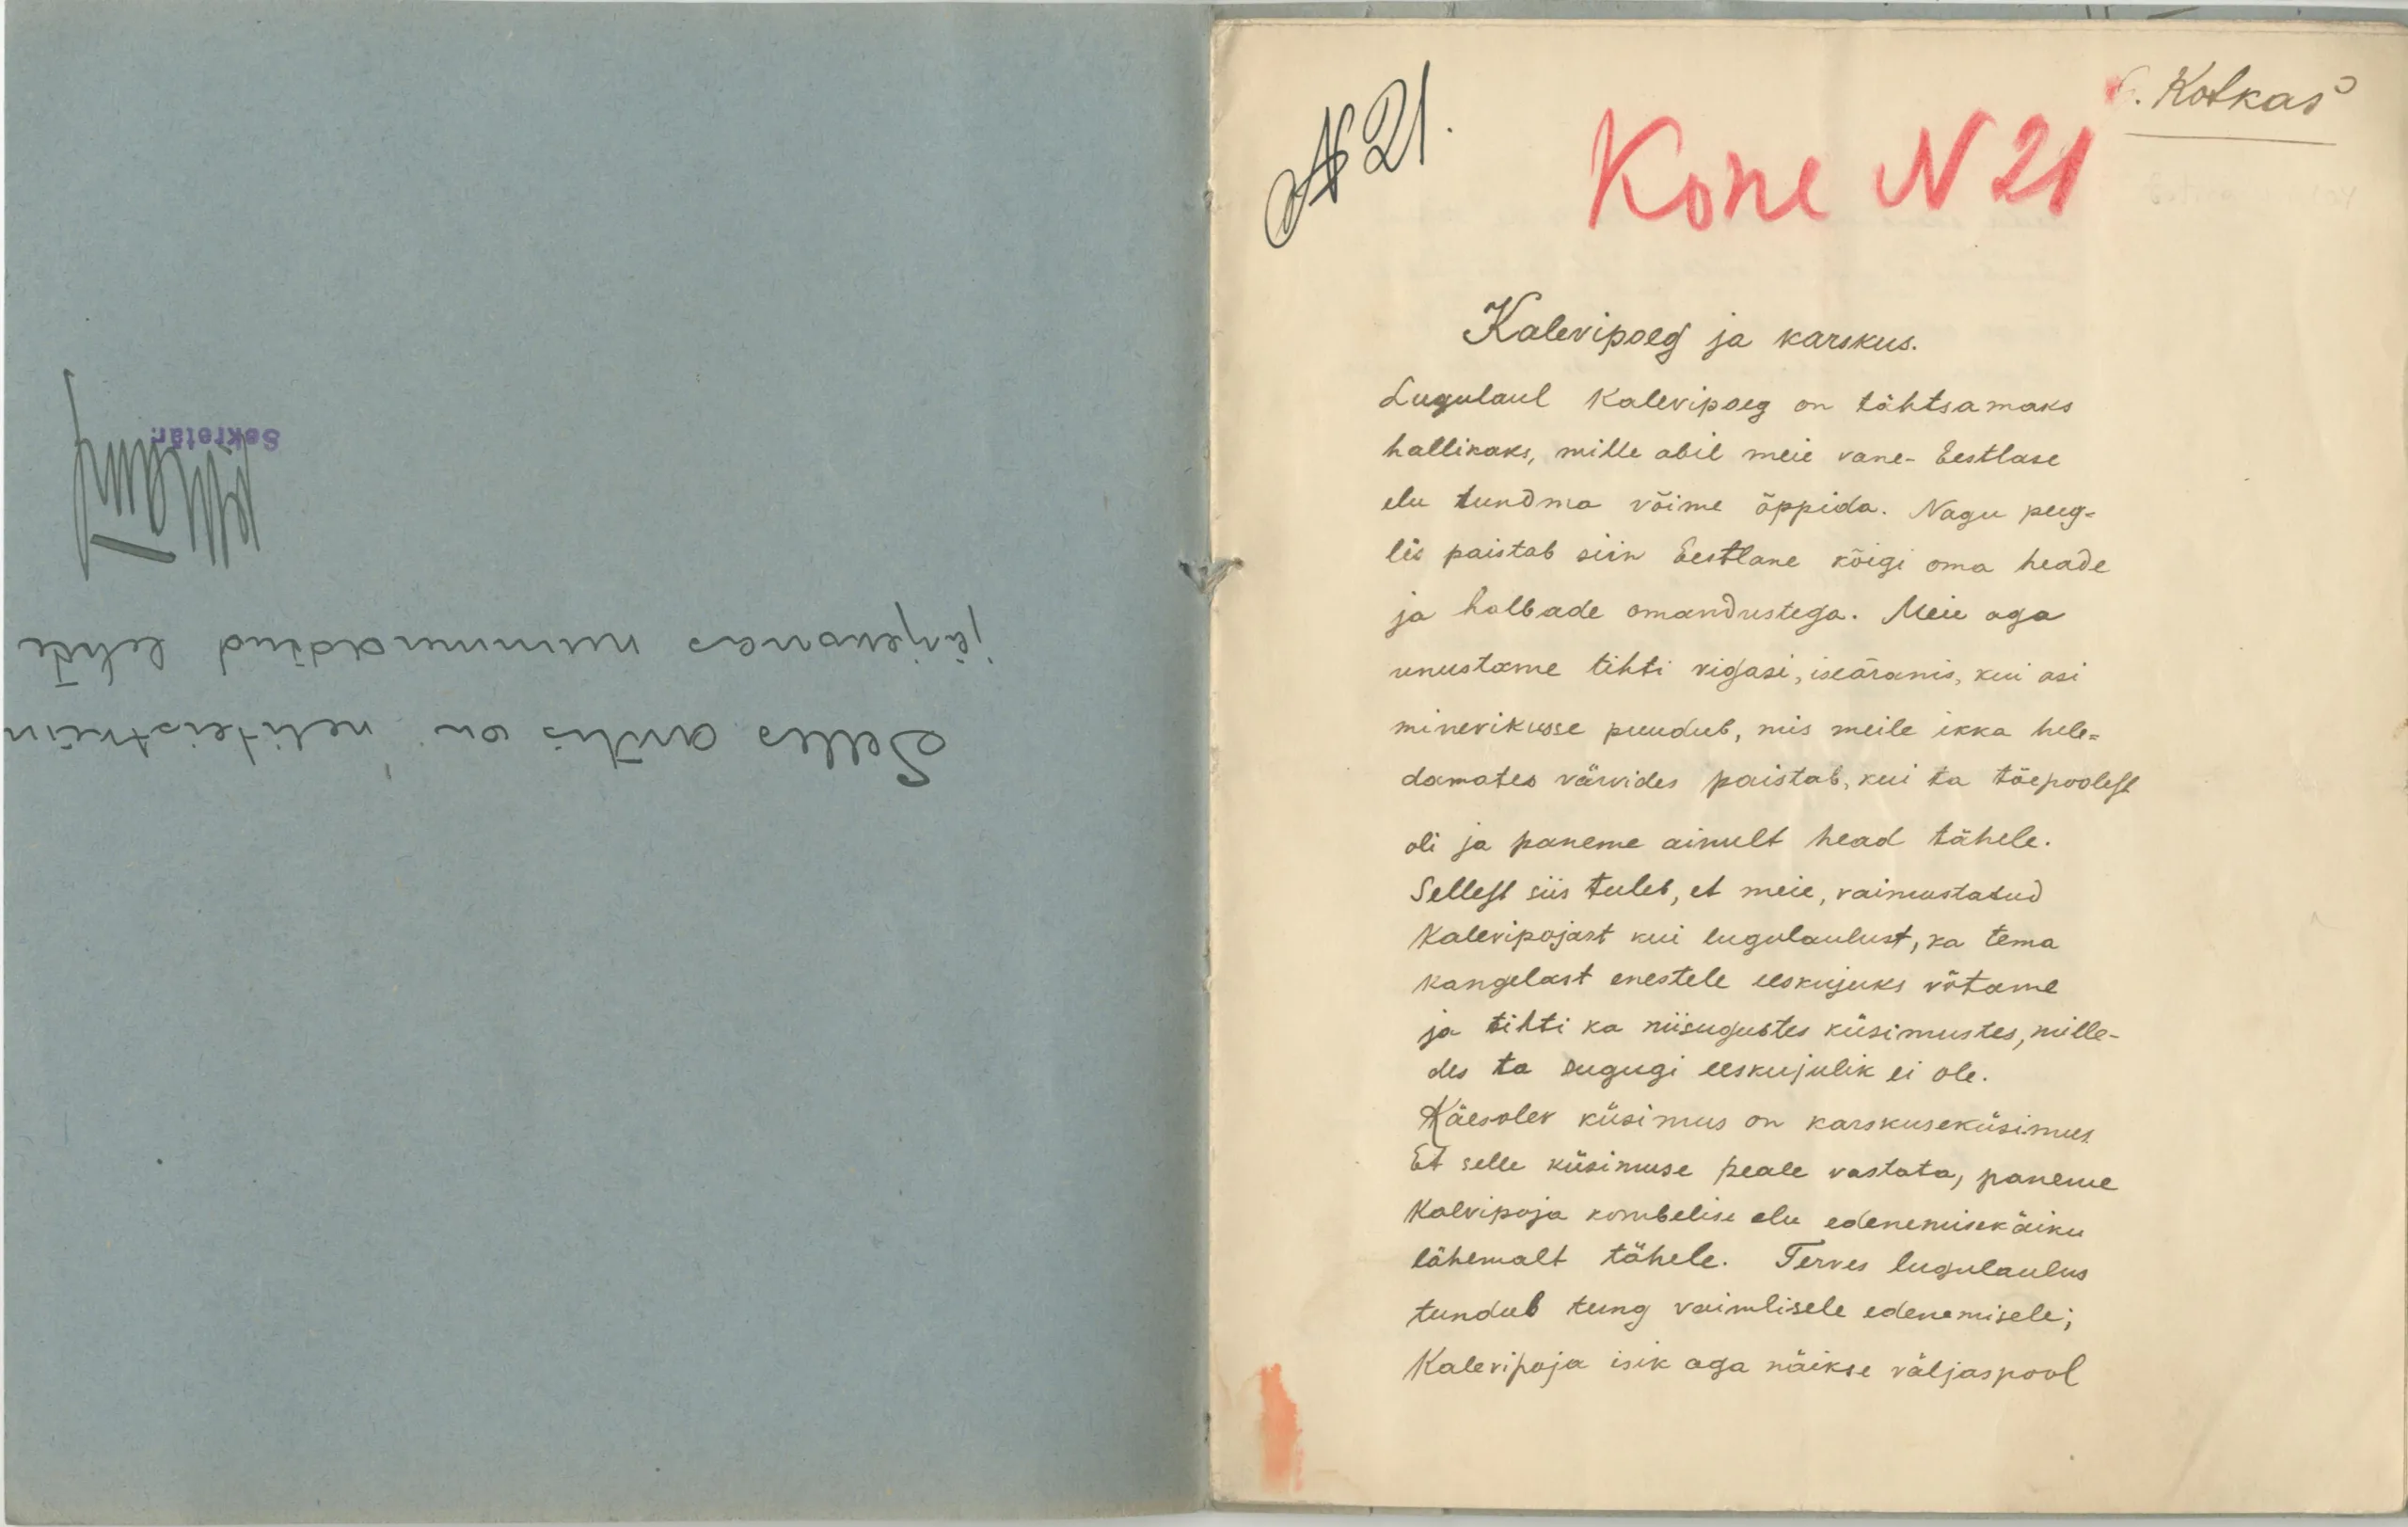 Selles aktis on neliteistkümn
järjekorras nummerdatud lehte
Sekretär:
№ 21.
Kotkas
Kone N 21
Kalevipoeg ja karskus.
Lugulaul Kalevipoeg on tähtsamaks
hallikaks, mille abil meie vane- Eestlase
elu tundma võime õppida. Nagu peeg-
lis paistab siin Eestlane kõigi oma heade
ja halbade omandustega. Meie aga
unustame tihti vigasi, iseäranis, kui asi
minevikusse puudub, mis meile ikka hele-
damates värvides paistab, kui ta tõepoolest
oli ja paneme ainult head tähele.
Sellest siis tuleb, et meie, vaimustatud
Kalevipojast kui lugulaulust, ka tema
kangelast enestele eeskujuks võtame
ja tihti ka niisugustes küsimustes, mille-
des ta sugugi eeskujulik ei ole.
Käesolev küsimus on karskuseküsimus.
Et selle küsimuse peale vastata, paneme
Kalvipoja kombelise elu edenemisekäiku
lähemalt tähele. Terves lugulaulus
tundub tung vaimlisele edenemisele;
Kalevipoja isik aga näikse väljaspool